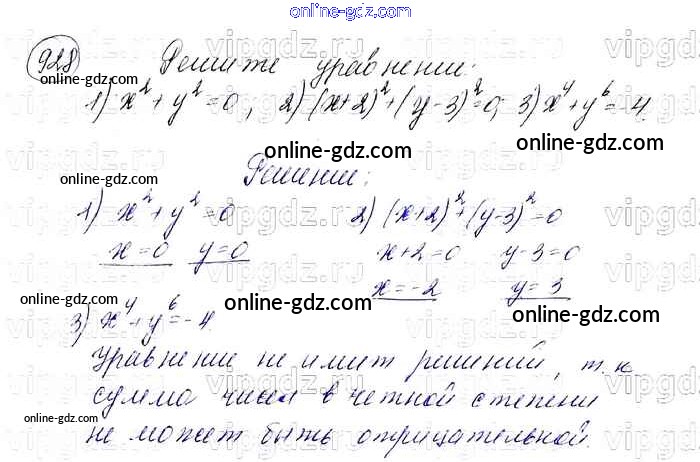 online-gdz.com
928 Решите уравнение:
online-gdz.com
1) x² + y² = 0, 2) (x+2)² + (y-3)² = 0, 3) x⁴ + y⁶ = -4.
online-gdz.com online-gdz.com
Решение:
online-gdz.com
1) x² + y² = 0 2) (x+2)² + (y-3)² = 0
online-gdz.com
x = 0 y = 0 x+2=0 y-3=0
x = -2 y = 3
online-gdz.com online-gdz.com online-gdz.com
3) x⁴ + y⁶ = -4.
Уравнение не имит решений, т. к
сумма чисел в четной степени
online-gdz.com
не может быть отрицательной.